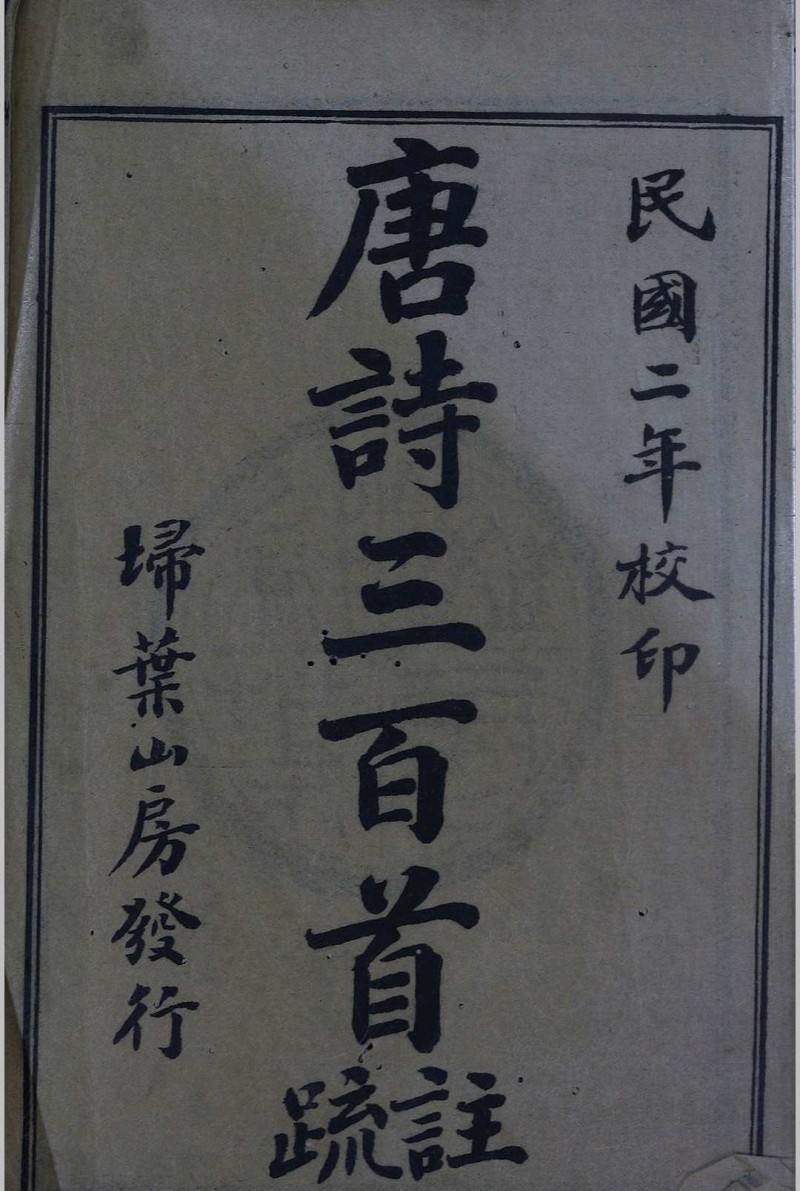 民國二年校印
唐詩三百首註疏
埽葉山房發行